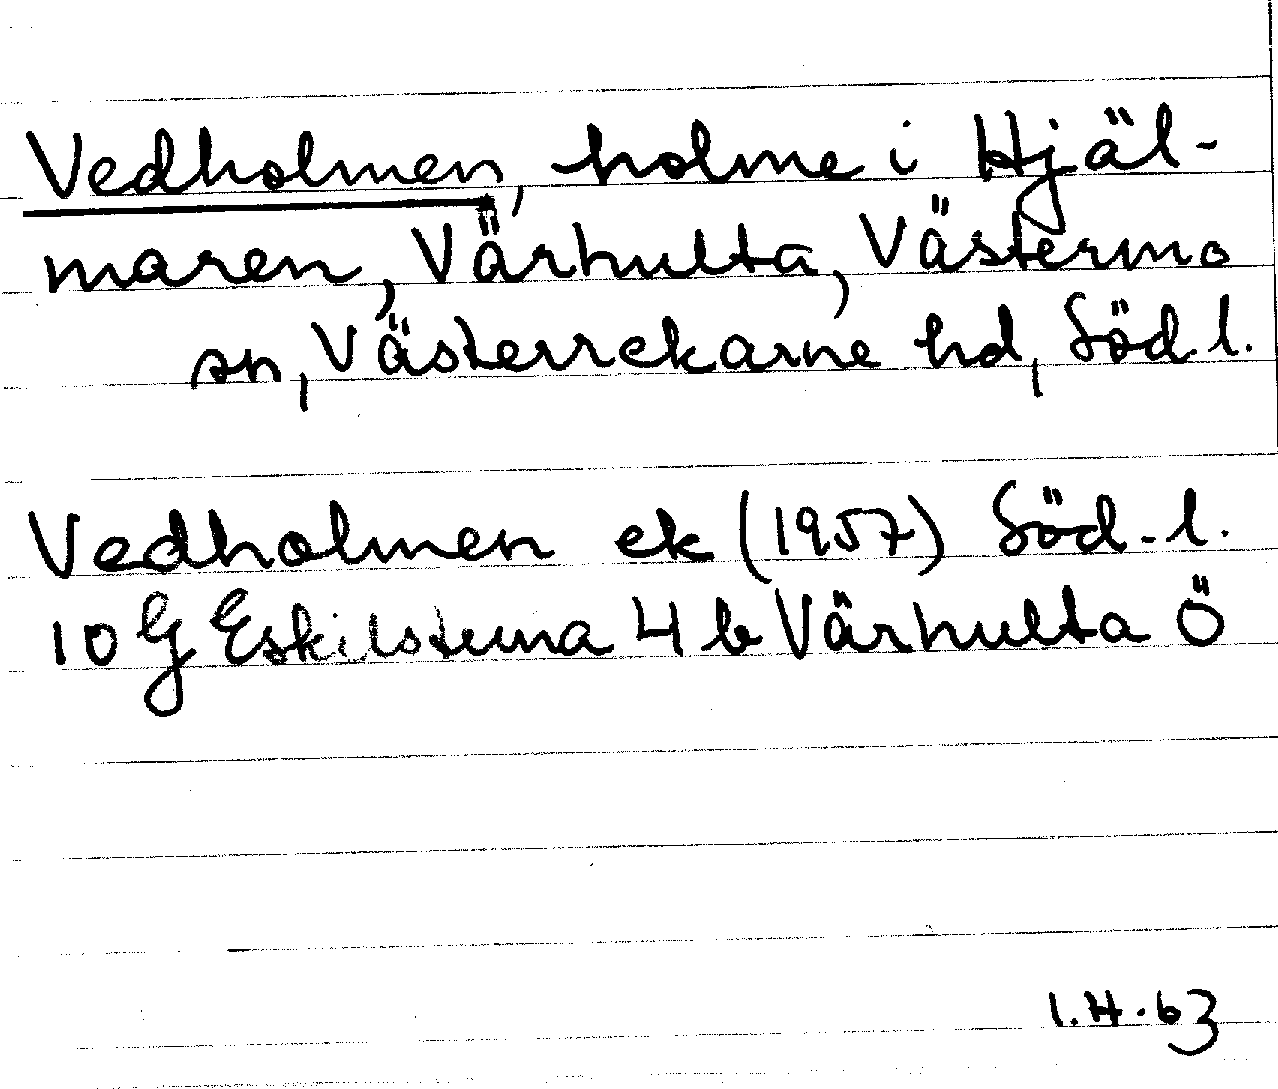 Vedholmen, holme i Hjäl-
maren, Värhulta, Västermo
sn, Västerrekarne hd, Söd.l.
Vedholmen ek (1957) Söd.l.
10 G Eskilstuna 4 b Värhulta Ö
I.H.63